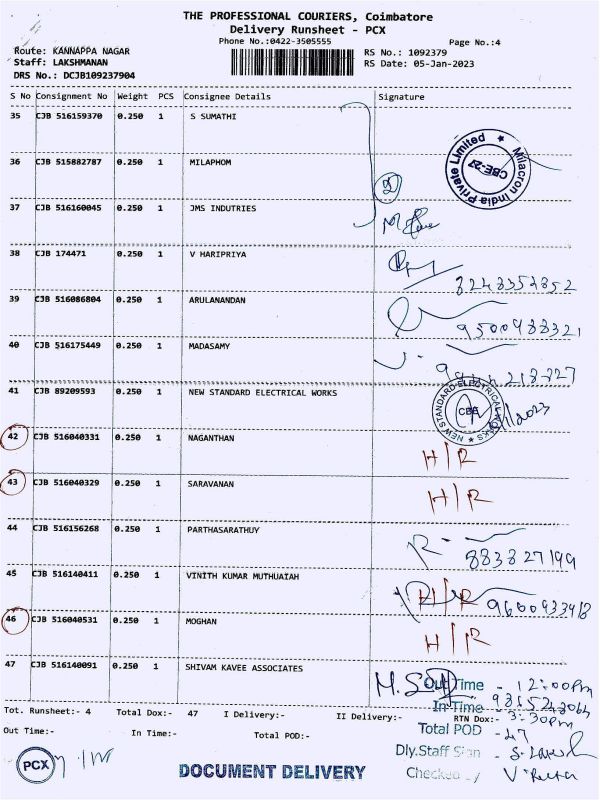 THE PROFESSIONAL COURIERS, Coimbatore
Delivery Runsheet - PCX
Phone No.:0422-3505555
Page No.:4
Route: KANNAPPA NAGAR
Staff: LAKSHMANAN
DRS No.: DCJB109237904
RS No.: 1092379
RS Date: 05-Jan-2023
S No Consignment No Weight PCS Consignee Details Signature
35 CJB 516159370 0.250 1 S SUMATHI
Milacron India Private Limited
CBE-27
36 CJB 515882787 0.250 1 MILAPHOM
37 CJB 516160045 0.250 1 JMS INDUTRIES
38 CJB 174471 0.250 1 V HARIPRIYA
8248357852
39 CJB 516086804 0.250 1 ARULANANDAN
9500988321
40 CJB 516175449 0.250 1 MADASAMY
41 CJB 89209593 0.250 1 NEW STANDARD ELECTRICAL WORKS
NEW STANDARD ELECTRICAL WORKS
CBE
42 CJB 516040331 0.250 1 NAGANTHAN H/R
43 CJB 516040329 0.250 1 SARAVANAN H/R
44 CJB 516156268 0.250 1 PARTHASARATHUY
883827199
45 CJB 516140411 0.250 1 VINITH KUMAR MUTHUAIAH H/R
9600933418
46 CJB 516040531 0.250 1 MOGHAN H/R
47 CJB 516140091 0.250 1 SHIVAM KAVEE ASSOCIATES
Out Time - 12:00pm
In Time -
Tot. Runsheet:- 4 Total Dox:- 47 I Delivery:- II Delivery:- RTN Dox:- 3:30pm
Out Time:- In Time:- Total POD:-
Total POD - 47
Dly.Staff Sign -
Checked by
PCX
DOCUMENT DELIVERY